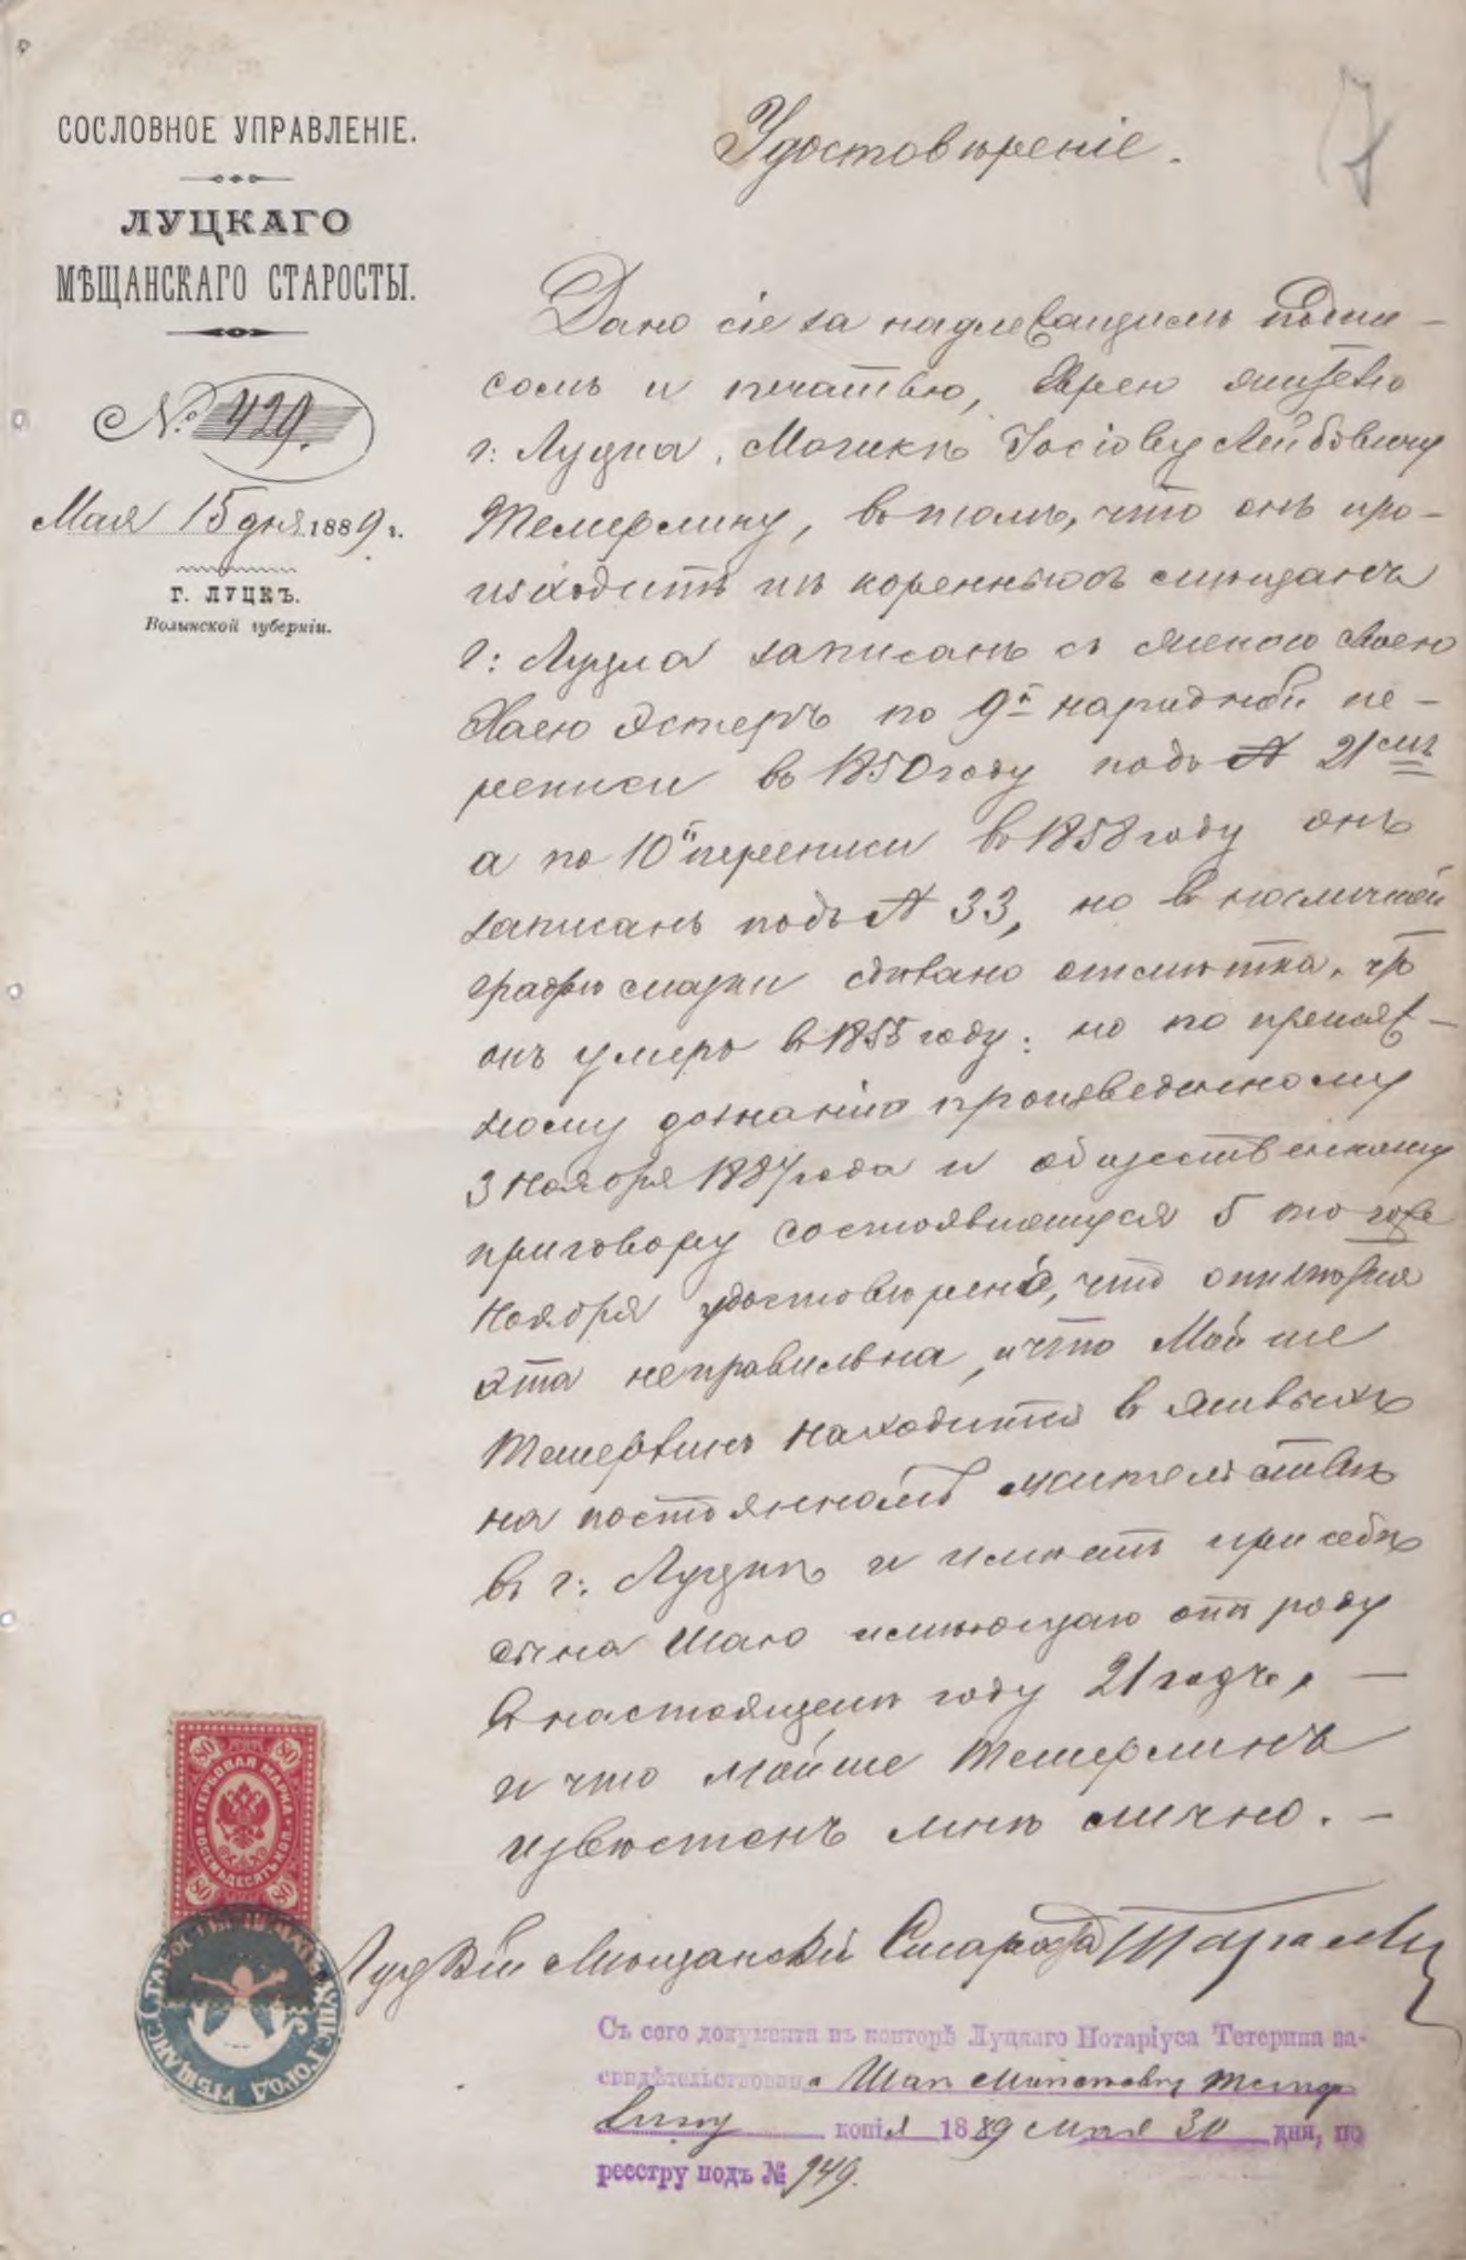 СОСЛОВНОЕ УПРАВЛЕНІЕ.
ЛУЦКАГО
МѢЩАНСКАГО СТАРОСТЫ.
№ 429.
Мая 15 дня 1889 г.
Г. ЛУЦКЪ.
Волынской губерніи.
7
Удостовѣреніе.
Дано сіе за надлежащимъ подпи-
сомъ и печатью, Еврею жителю
г: Луцка, Іосіову Лейбовичу
Темерлину, въ томъ, что онъ про-
изходитъ изъ коренныхъ мѣщанъ
г: Луцка записанъ съ женою своею
Хаею Эстеръ по 9й народной пе-
реписи въ 1850 году подъ № 21мъ
а по 10й переписи въ 1858 году онъ
записанъ подъ № 33, но в наличной
графѣ сказки сдѣлано отмѣтка, что
онъ умеръ в 1855 году: но по
дознанію произведенному
3 Ноября 1887 года и общественному
приговору состоявшемуся 5 того же
Ноября удостовѣрено, что отмѣтка
эта неправильна, и что Мойше
Темерлинъ находится в живыхъ
на постоянномъ жительствѣ
въ г: Луцкѣ и имѣетъ при себѣ
сына Шаю имѣющаго отъ роду
в настоящемъ году 21 годъ, —
и что Мойше Темерлинъ
извѣстенъ мнѣ лично. —
Луцкій Мѣщанскій Староста
ГЕРБОВАЯ МАРКА
ВОСЕМЬДЕСЯТЪ КОП.
80 80
80 80
Съ сего документа въ конторѣ Луцкаго Нотаріуса Тетерина за-
свидѣтельствована Шаѣ Мойшовичу Темер
лину копія 1889 мая 30 дня, по
реестру подъ № 949.